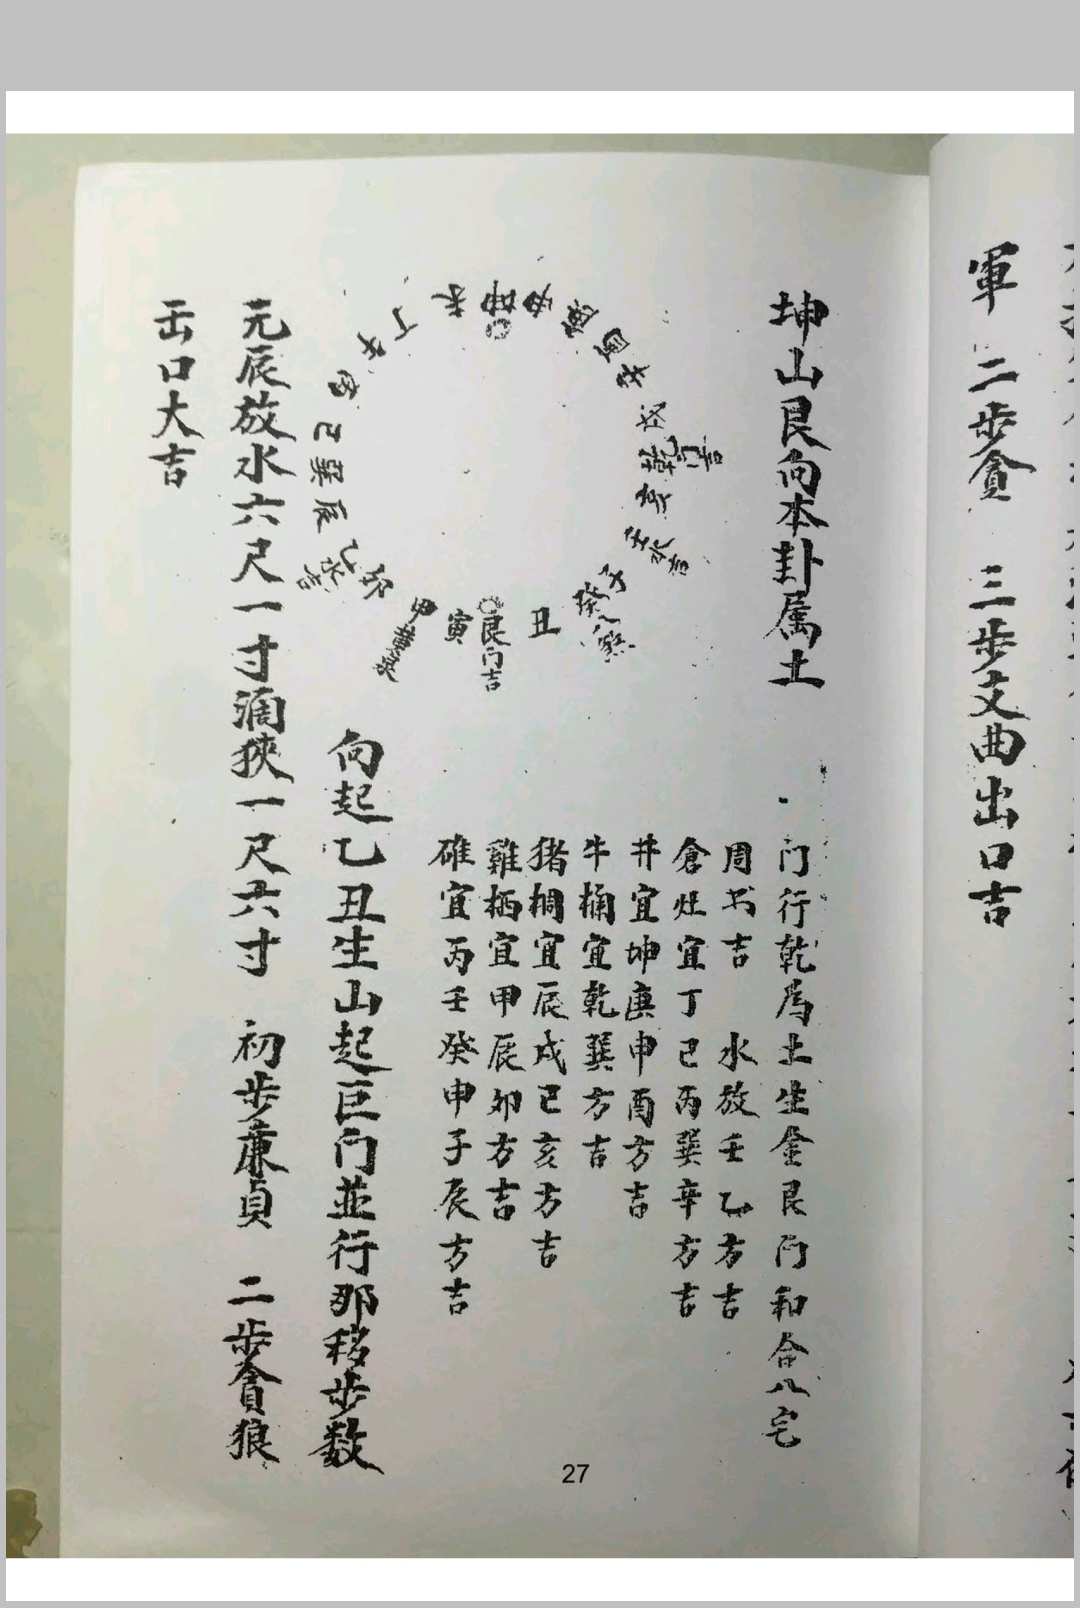 軍 二步貪 三步文曲出口吉
坤山艮向本卦属土
门行乾為土生金艮门和合八宅
周书吉 水放壬乙方吉
倉灶宜丁己丙巽辛方吉
井宜坤庚申酉方吉
牛桶宜乾巽方吉
猪椆宜辰戌己亥方吉
雞栖宜甲辰卯方吉
碓宜丙壬癸申子辰方吉
坤
申
庚
酉
辛
戌
乾 吉
亥
壬水吉
子
癸八煞
丑
艮门吉
寅
甲黄泉
卯
乙水吉
辰
巽
巳
丙
午
丁
未
向起乙丑生山起巨门並行那移步数
元辰放水六尺一寸濶狹一尺六寸 初步廉貞 二步貪狼
出口大吉
27